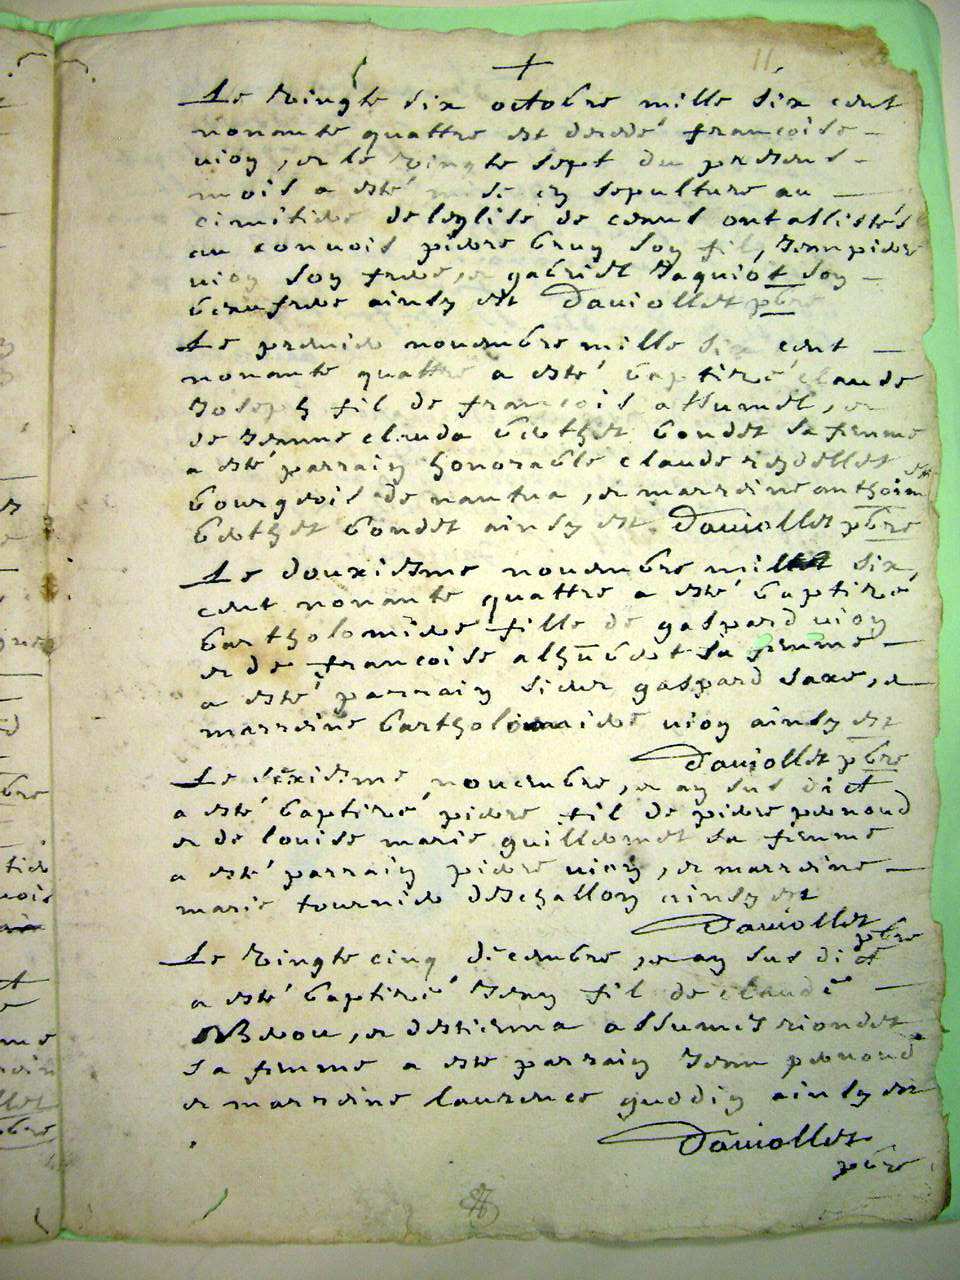 11
Le vingte six octobre mille six cent
nonante quattre est decede francoise
uioy, et le vingte sept du presens
mois a esté mise en sepulture au
cimitiere de leglise de ceans ont assistés
au conuois pierre bruy soy fil, Jean pierre
uioy soy frere, et gabriel Jaquiot soy
beaufrere ainsy est Dauiollet pbre
Le premier nouembre mille six cent
nonante quattre a esté baptizé claude
Joseph fil de francois allumel, et
de Jeanne clauda berthet bondet sa femme
a esté parrain honorable claude
bourgeois de nantua, et marreine
berthet bondet ainsy est Dauiollet pbre
Le douxiesme nouembre mille six
cent nonante quattre a esté baptizé
bartholomiere fille de gaspard uioy
et de francoise sa femme
a esté parrain sieur gaspard saxe, et
marreine bartholomiere uioy ainsy est
Dauiollet pbre
Le sexiesme nouembre, et an sus dict
a esté baptizé pierre fil de pierre pernoud
et de louise marie guillermet sa femme
a esté parrain pierre uioy, et marreine
marie tournier deschallon ainsy est
Dauiollet pbre
Le vingte cinq decembre, et an sus dict
a esté baptizé Jean fil de claude
et estienna
sa femme a este parrain Jean pernoud
et marreine laurence guddin ainsy est
Dauiollet
pbre